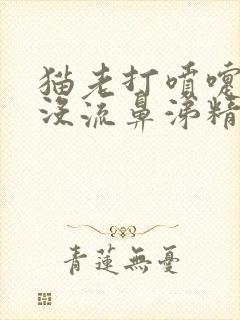 猫老打喷嚏
没流鼻涕精
青莲無憂